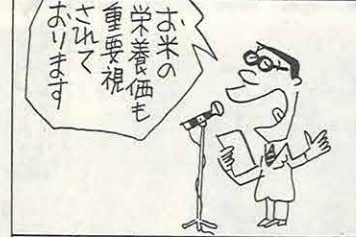 お米の
栄養価も
重要視
されて
おります